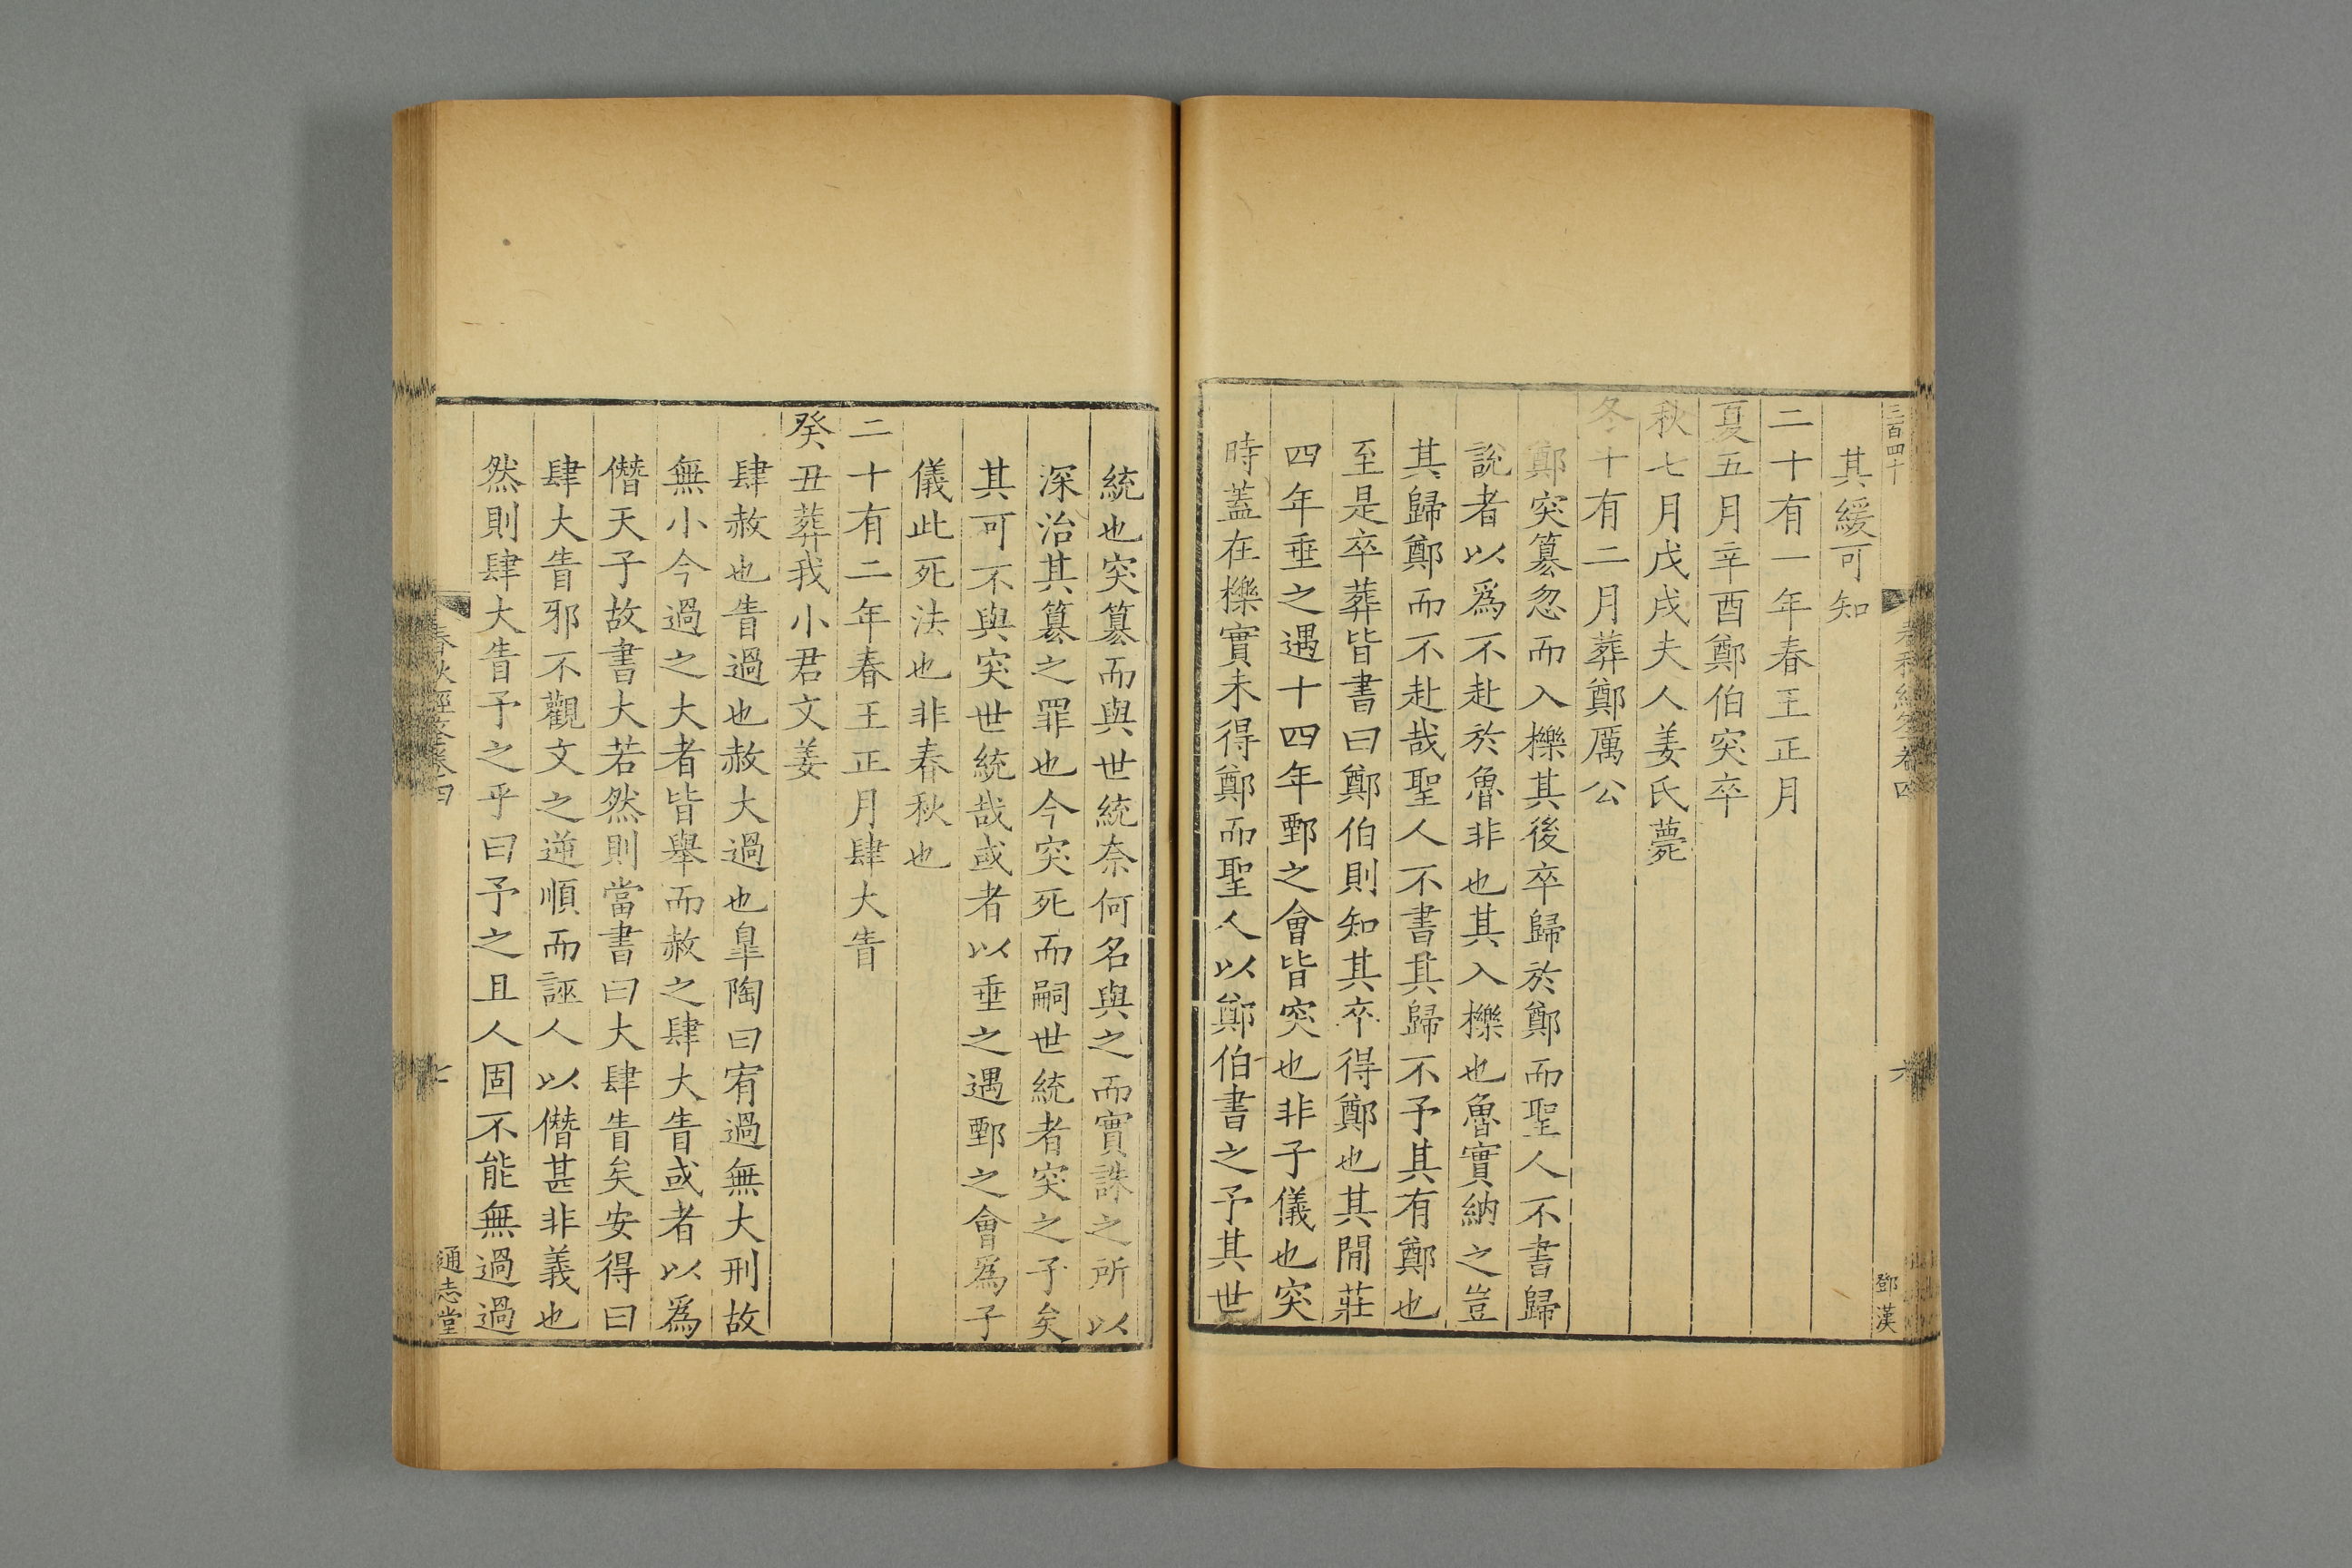 三百四十
鄧漢
其緩可知
二十有一年春王正月
夏五月辛酉鄭伯突卒
秋七月戊戌夫人姜氏薨
冬十有二月葬鄭厲公
鄭突簒忽而入櫟其後卒歸於鄭而聖人不書歸
說者以爲不赴於魯非也其入櫟也魯實納之豈
其歸鄭而不赴哉聖人不書其歸不予其有鄭也
至是卒葬皆書曰鄭伯則知其卒得鄭也其閒莊
四年垂之遇十四年鄄之會皆突也非子儀也突
時蓋在櫟實未得鄭而聖人以鄭伯書之予其世
統也突簒而與世統奈何名與之而實誅之所以
深治其簒之罪也今突死而嗣世統者突之子矣
其可不與突世統哉或者以垂之遇鄄之會爲子
儀此死法也非春秋也
二十有二年春王正月肆大眚
癸丑葬我小君文姜
肆赦也眚過也赦大過也臯陶曰宥過無大刑故
無小今過之大者皆舉而赦之肆大眚或者以爲
僭天子故書大若然則當書曰大肆眚矣安得曰
肆大眚邪不觀文之逆順而誣人以僭甚非義也
然則肆大眚予之乎曰予之且人固不能無過過
通志堂